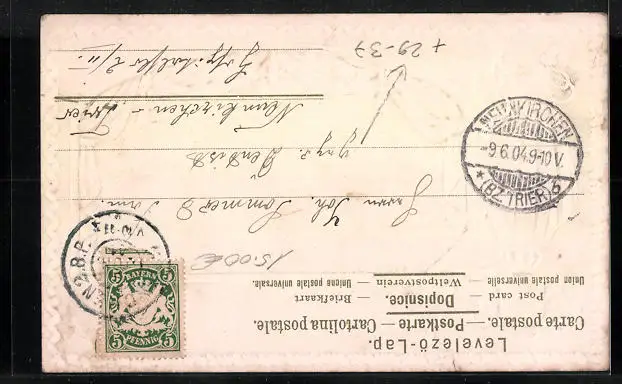 Levelező-Lap.
Carte postale. — Postkarte — Cartolina postale.
Post card — Dopisnice. — Briefkaart
Union postale universelle — Weltpostverein — Unione postale universale.
1500€
Herrn Joh. Sommer
Dentist
Neunkirchen -
Trier
+ 29-37
NEUNKIRCHEN
-9.6.04.9-10V.
* (BZ. TRIER) b
N.2.B.P.
5 BAYERN 5
5 PFENNIG 5